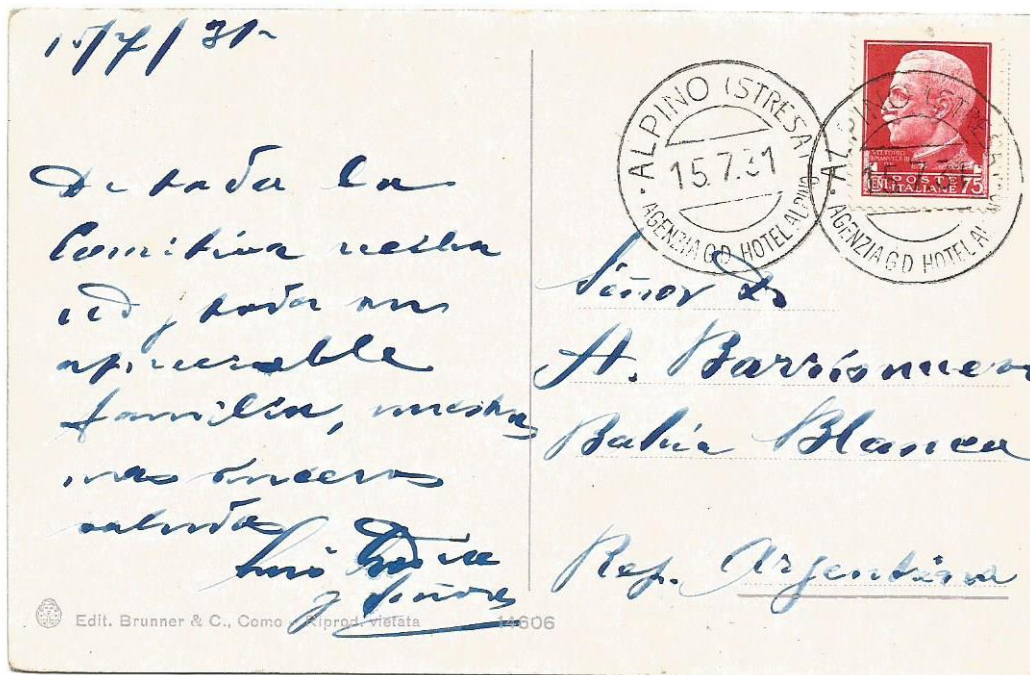 15/7/31-
De toda la
Comitiva reciba
Ud y toda su
apreciable
familia, nuestros
mas sinceros
saludos
y Señora
Edit. Brunner & C., Como - Riprod. vietata 14606
ALPINO (STRESA)
15.7.31
AGENZIA G.D. HOTEL ALPINO
ALPINO (STRESA)
15.7.31
AGENZIA G.D. HOTEL ALPINO
POSTE
ITALIANE
CENT. 75
Señor Dn
A. Barrionuevo
Bahia Blanca
Rep. Argentina